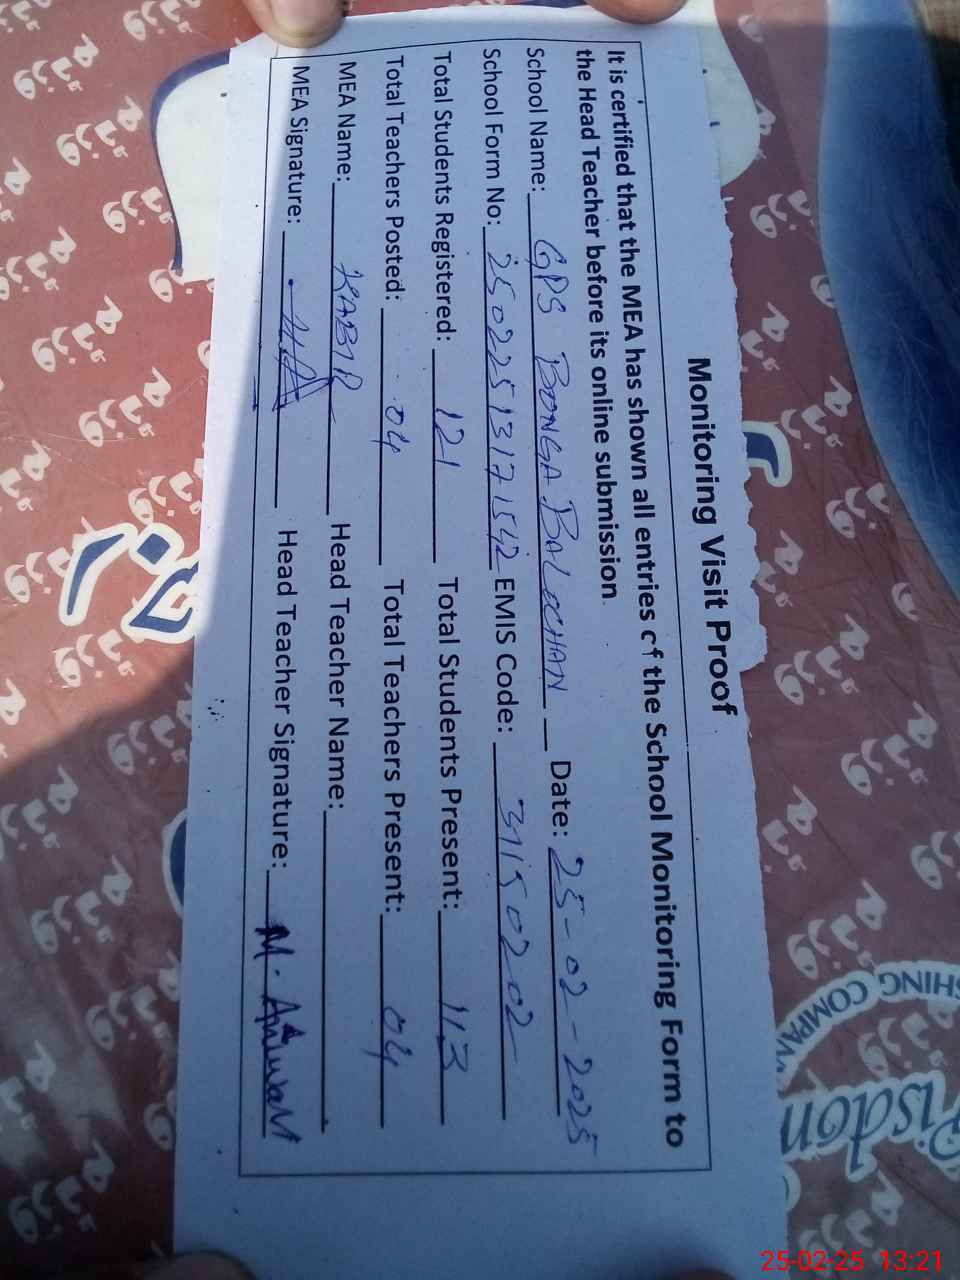 Monitoring Visit Proof
It is certified that the MEA has shown all entries of the School Monitoring Form to
the Head Teacher before its online submission
School Name: GPS BONGA BALOCHAN Date: 25-02-2025
School Form No: 25022513171542 EMIS Code: 31150202
Total Students Registered: 121 Total Students Present: 113
Total Teachers Posted: 04 Total Teachers Present: 04
MEA Name: KABIR Head Teacher Name:
MEA Signature: Head Teacher Signature: M.
SHING COMPANY
25-02-25 13:21